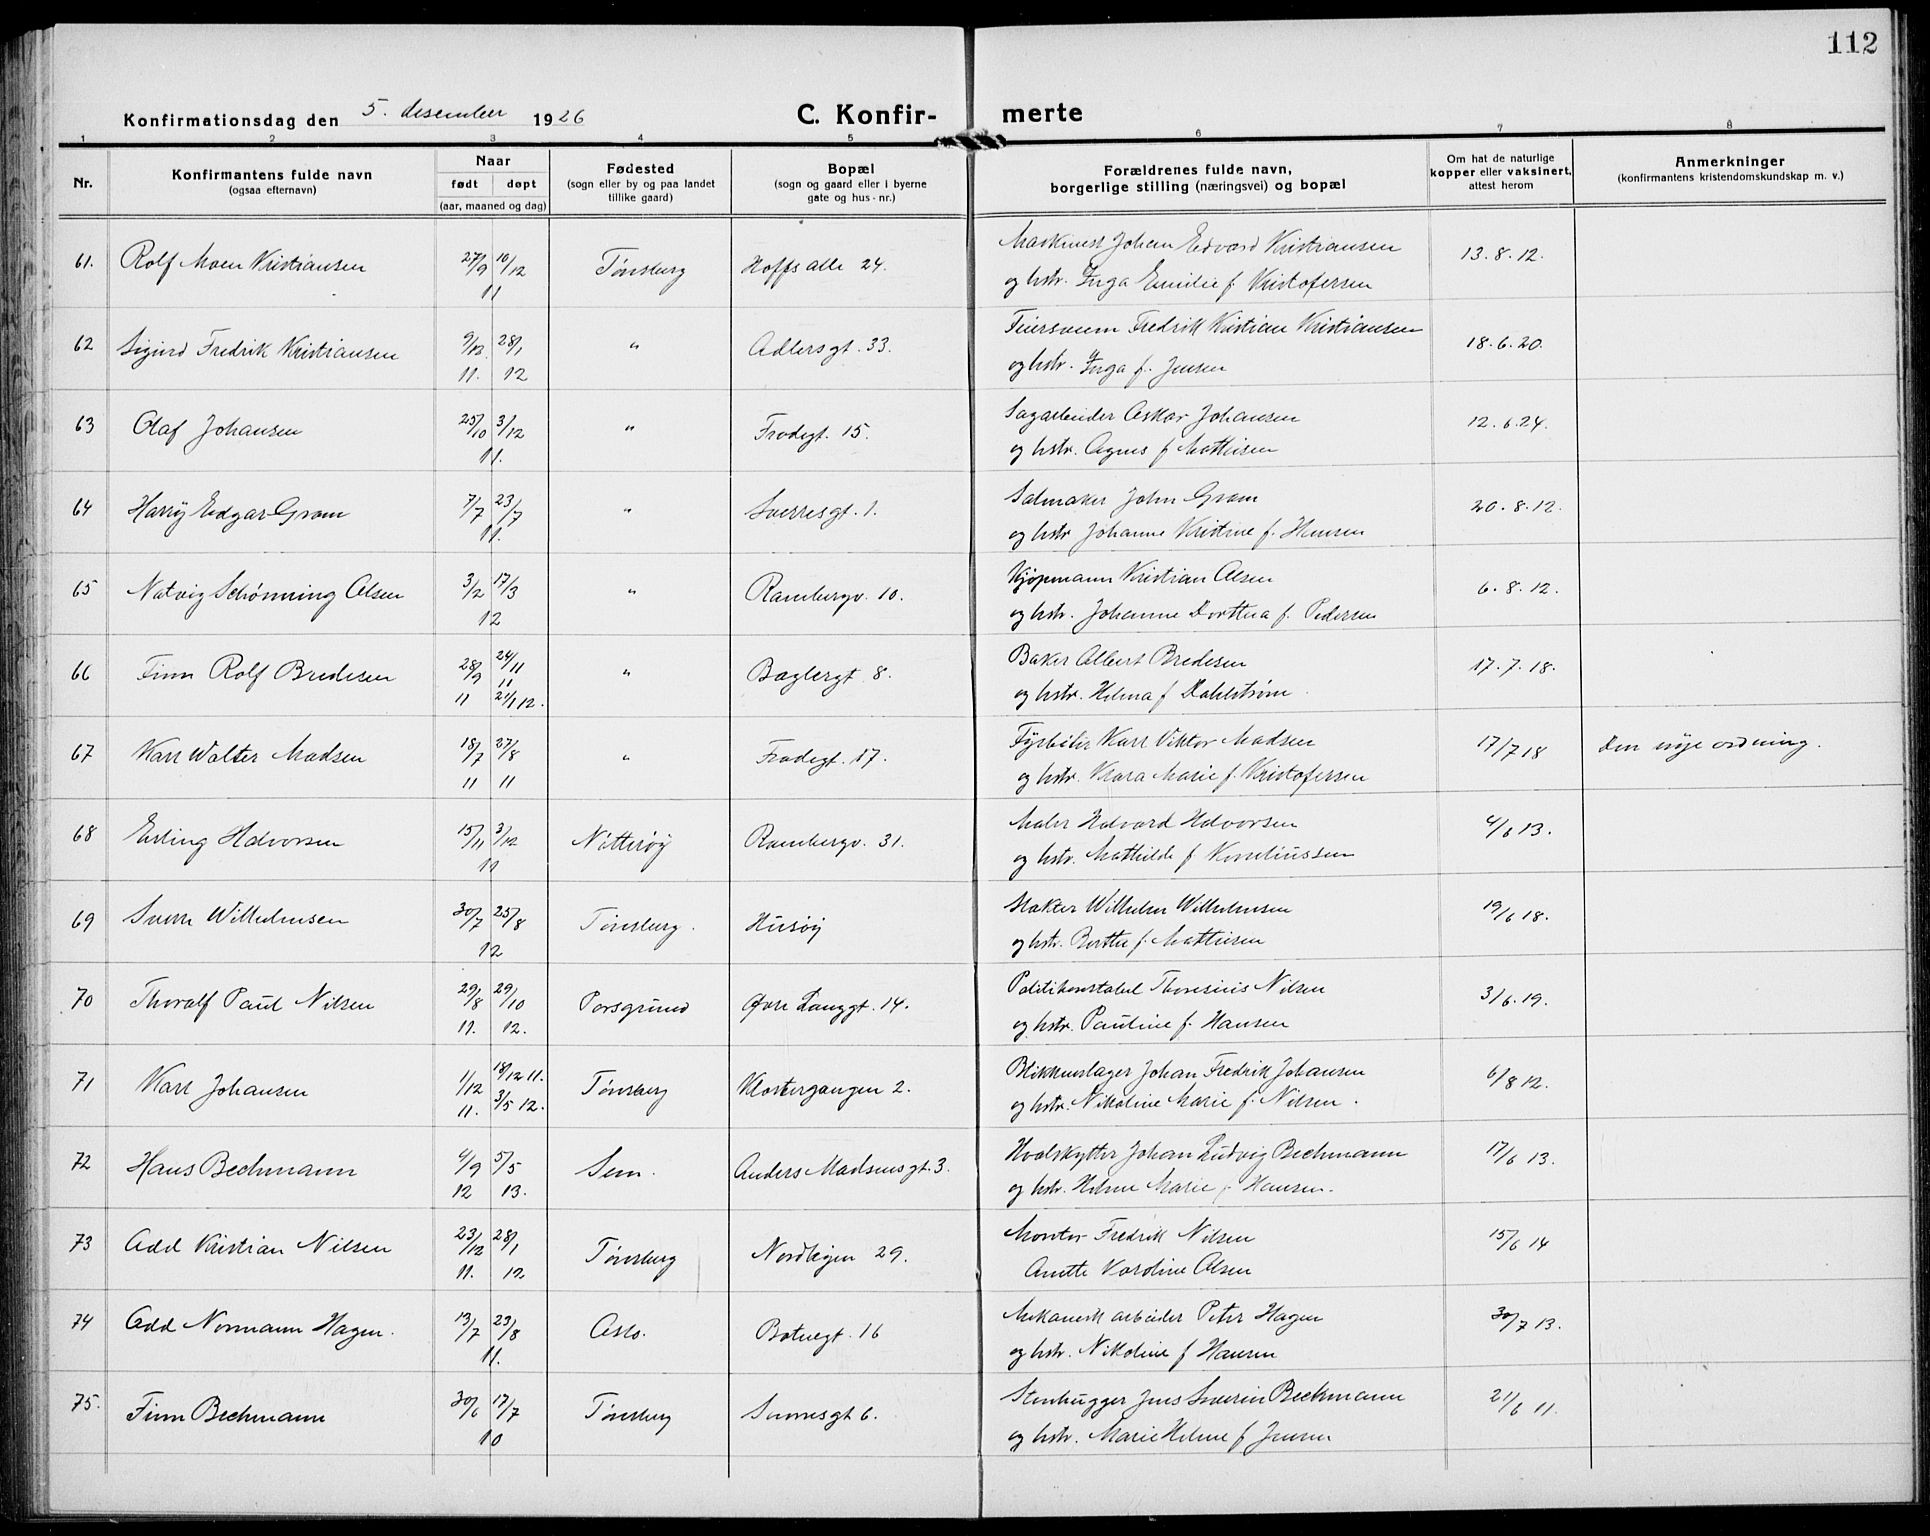 112
Konfirmationsdag den 5. desember 1926 C. Konfir- merte
1 2 3 4 5 6 7 8
Nr. Konfirmantens fulde navn (ogsaa efternavn) Naar født døpt (aar, maaned og dag) Fødested (sogn eller by og paa landet tillike gaard) Bopæl (sogn og gaard eller i byerne gate og hus-nr.) Forældrenes fulde navn, borgerlige stilling (næringsvei) og bopæl Om hat de naturlige kopper eller vaksinert, attest herom Anmerkninger (konfirmantens kristendomskundskap m. v.)
61. Rolf Moen Kristiansen 27/9 10/12 11 Tønsberg Hoffs alle 24. Maskinist Johan Edvard Kristiansen 13.8.12.
og hstr. Inga Emilie f. Kristofersen
62 Sigurd Fredrik Kristiansen 9/12 11. 28/1 12 " Adlersgt. 33. Feiersvenn Fredrik Kristian Kristiansen 18.6.20.
og hstr. Inga f. Jensen
63 Olaf Johansen 25/10 3/12 11. " Frodegt. 15. Sagarbeider Oskar Johansen 12.6.24.
og hstr. Agnes f Mathisen
64 Harry Edgar Gram 7/7 23/7 11. " Sverresgt. 1. Salmaker John Gram 20.8.12.
og hstr Johanne Kristine f. Hansen
65 Natvig Schønning Olsen 3/2 17/3 12 " Rambergv. 10. Kjøpmann Kristian Olsen 6.8.12.
og hstr. Johanne Dorthea f. Pedersen
66 Finn Rolf Bredesen 28/9 11 24/11 11 21/1 12. " Baglergt 8. Baker Albert Bredesen 17.7.18.
og hstr. Helma f Dahlstrøm.
67 Karl Walter Madsen 18/7 11 27/8 11 " Frodegt. 17. Fyrbøter Karl Viktor Madsen 17/7 18 Den nye ordning.
og hstr. Klara Marie f. Kristofersen
68 Erling Halvorsen 15/11 3/12 11 Nøtterøy Rambergv. 31. Maler Halvard Halvorsen 4/6 13.
og hstr. Mathilde f Korneliussen
69 Sverre Wilhelmsen 30/7 25/8 12 Tønsberg. Husøy Slakter Wilhelm Wilhelmsen 19/6 18.
og hstr. Berthe f. Mathisen
70 Thoralf Paul Nilsen 29/8 11. 29/10 12. Porsgrund Øvre Langgt. 14. Politikonstabel Thoresius Nilsen 3/6.19.
og hstr. Pauline f. Hansen
71 Karl Johansen 1/12 11. 18/12 11. 3/5 12. Tønsberg Klostergangen 2. Blikkenslager Johan Fredrik Johansen 6/8 12.
og hstr. Nikoline Marie f. Nilsen.
72 Hans Bechmann 4/9 12 5/5 13. Sem. Anders Madsensgt. 3. Hvalskytter Johan Ludvig Bechmann 17/6 13.
og hstr. Helene Marie f Hansen.
73 Odd Kristian Nilsen 23/12 11. 28/1 12 Tønsberg Nordbyen 29. Montør Fredrik Nilsen 15/6 14
Anette Karoline Olsen
74 Odd Normann Hagen. 13/7 23/8 11. Oslo. Botnegt. 16 Mekanisk arbeider Peter Hagen 30/7 13.
og hstr. Nikoline f Hansen
75. Finn Bechmann 30/6 17/7 10 Tønsberg Sverresgt 6. Stenhugger Jens Severin Bechmann 21/6 11.
og hstr. Marie Helene f Jensen